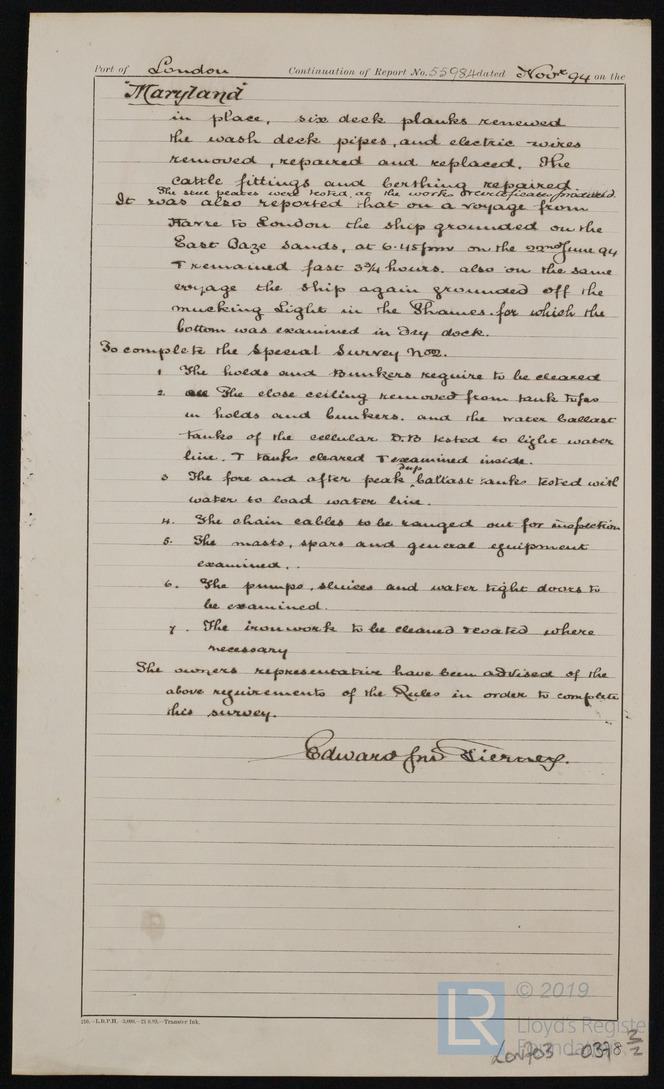 Port of London Continuation of Report No. 55984 dated Novr 94 on the
"Maryland"
in place, six deck planks renewed
the wash deck pipes, and electric wires
removed, repaired and replaced. The
cattle fittings and berthing repaired.
The steel plates were tested at the works & certificates produced.
It was also reported that on a voyage from
Havre to London the ship grounded on the
East Oaze Sands, at 6.45pm on the 22nd June 94
& remained fast 3¾ hours. also on the same
voyage the ship again grounded off the
mucking Light in the Thames. for which the
bottom was examined in Dry dock.
To complete the Special Survey No2.
1 The holds and Bunkers require to be cleared
2. The close ceiling removed from tank tops
in holds and bunkers. and the water ballast
tanks of the cellular D.B tested to light water
line. & tanks cleared & examined inside.
3 The fore and after peak deep ballast tanks tested with
water to load water line.
4. The chain cables to be ranged out for inspection
5. The masts, spars and general equipment
examined..
6. The pumps, sluices and water tight doors to
be examined.
7. The ironwork to be cleaned & coated where
necessary
The owners representative have been advised of the
above requirements of the Rules in order to complete
this survey.
Edward Jno Tierney.
210.—L.R.P.H.—3,000.—21.6.93.—Transfer Ink.
© 2019
LR
Lloyd's Register
Foundation
Lon703-0398 2/2